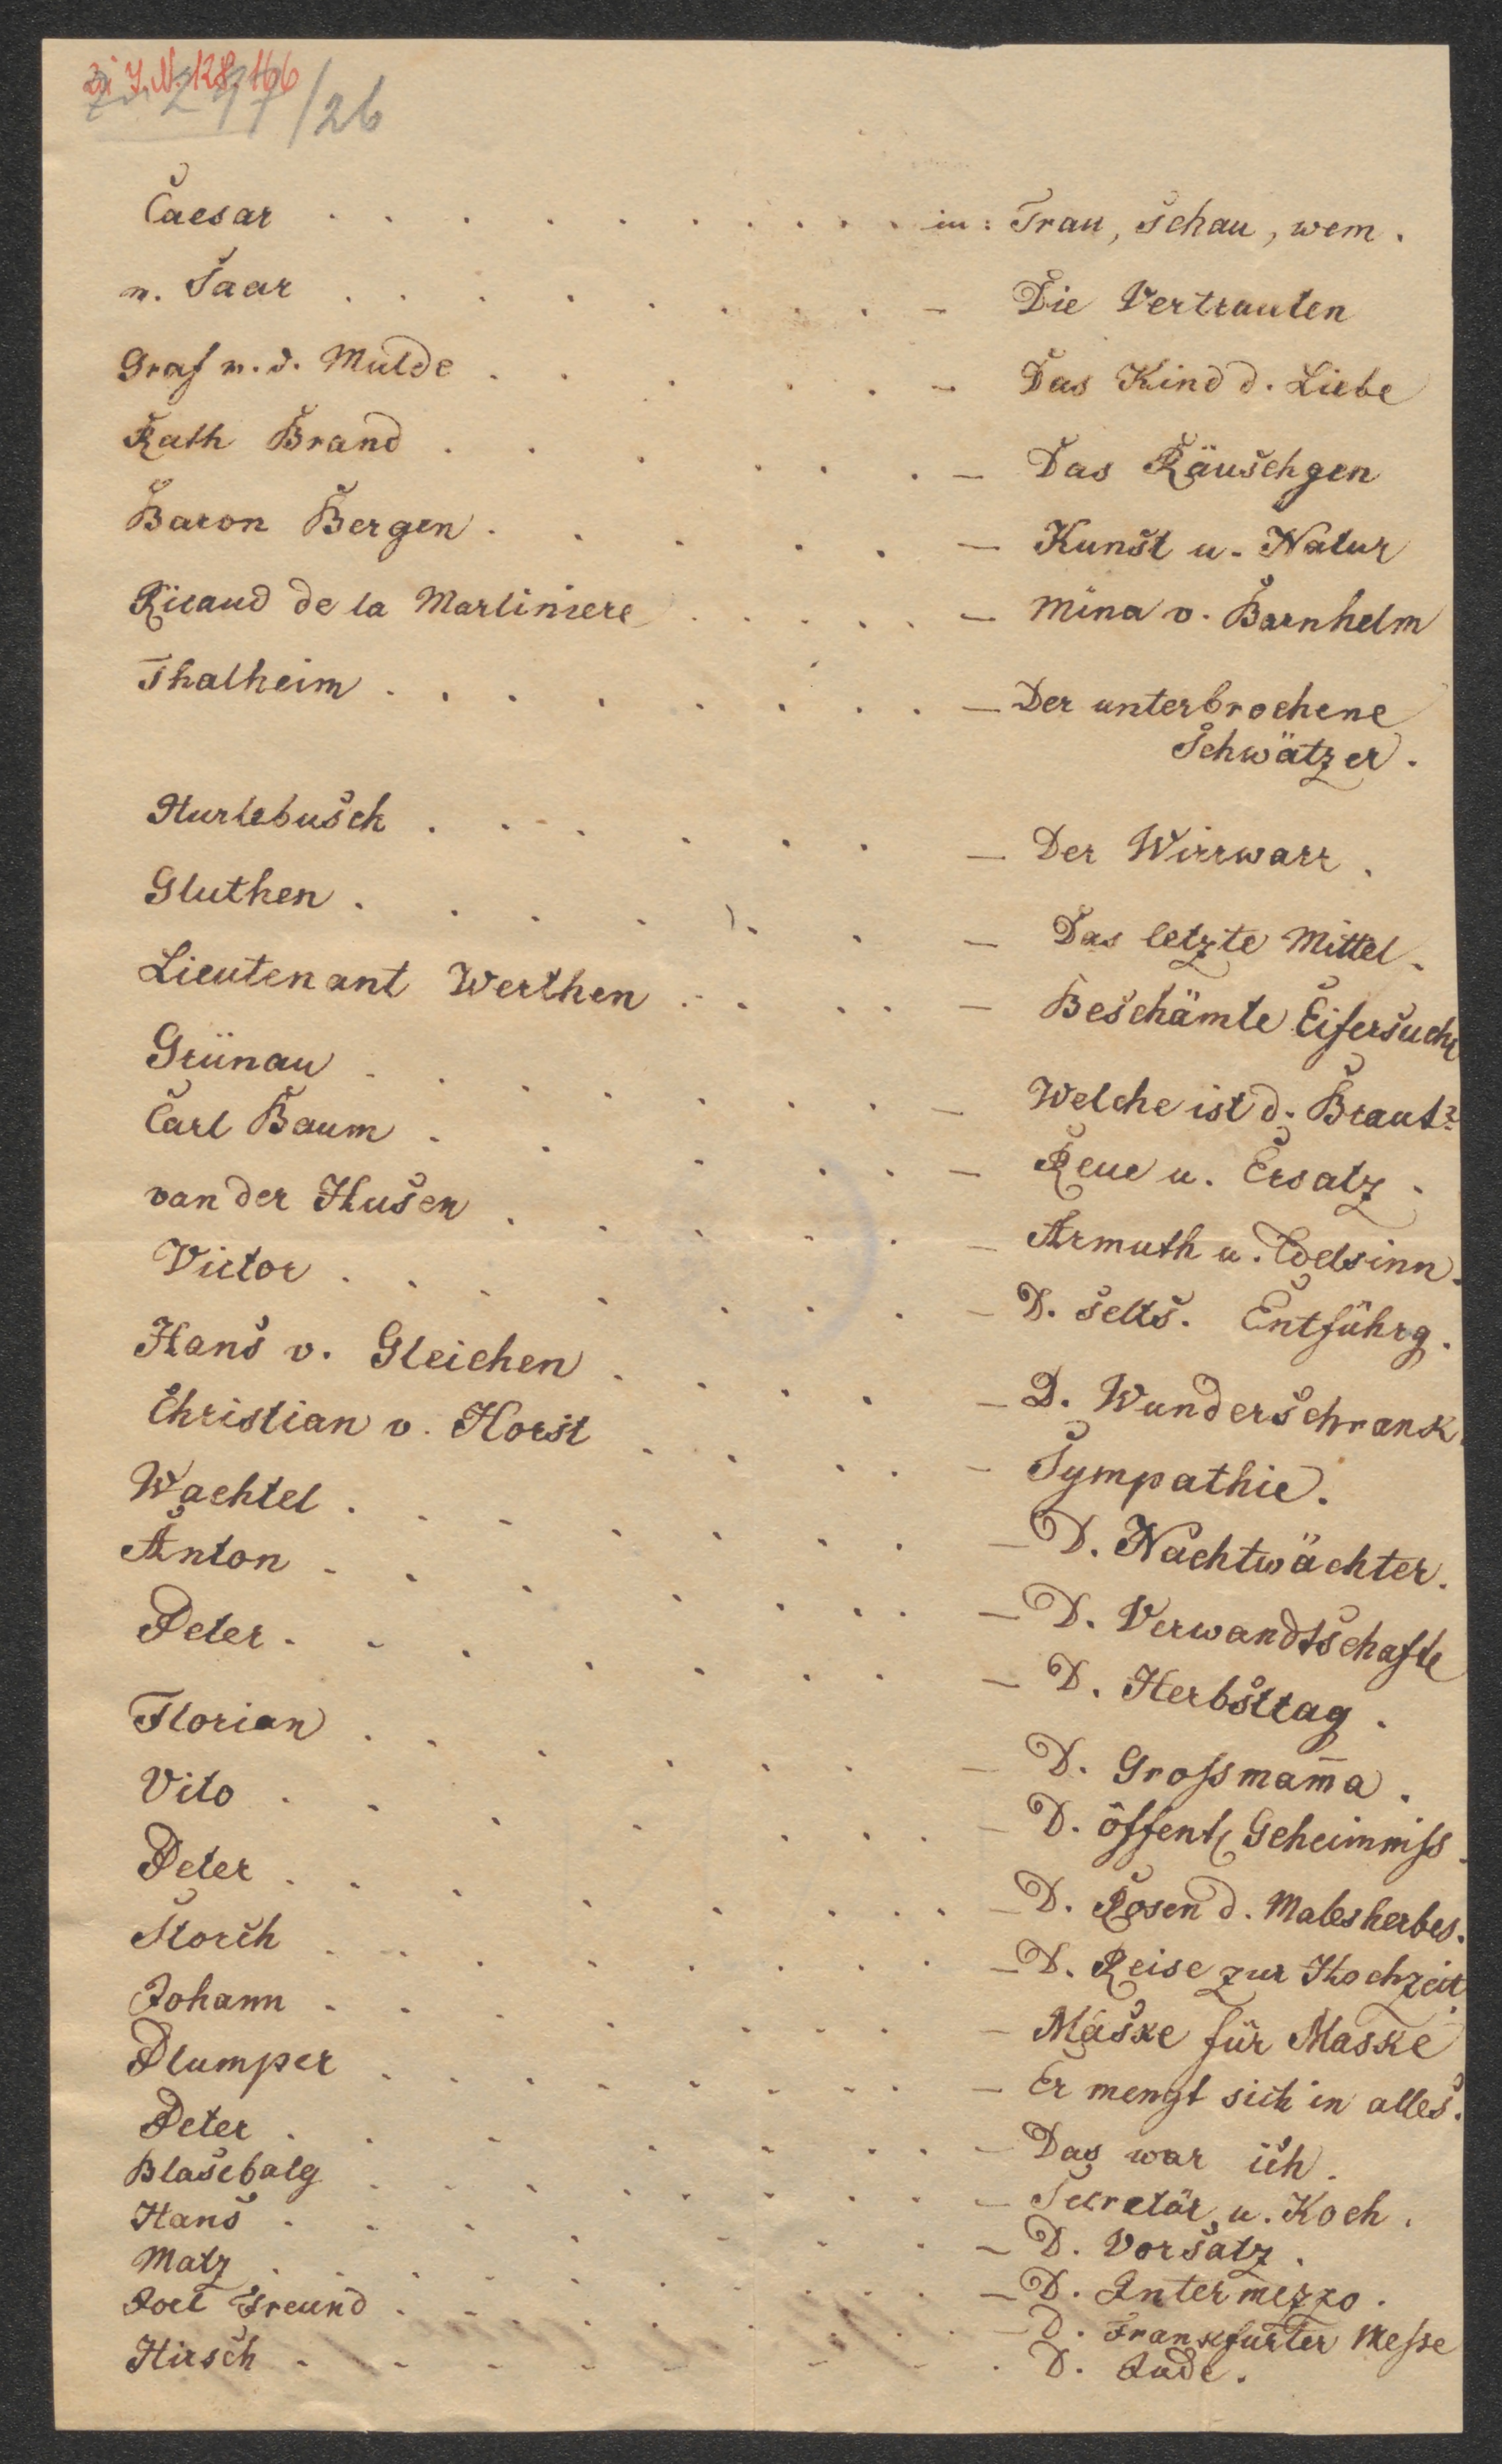 Zu J.N. 128.166
Zu 217/26
Caesar . . . . . . . . . . in: Trau, schau, wem.
v. Saar . . . . . . . . — Die Vertrauten
Graf v. d. Mulde . . . . . . — Das Kind d. Liebe
Rath Brand . . . . . . — Das Räuschgen
Baron Bergen . . . . . — Kunst u. Natur
Ricaud de la Marliniere . . . . . — Mina v. Barnhelm
Thalheim . . . . . . . . — Der unterbrochene
Schwätzer.
Hurlebusch . . . . . . — Der Wirrwarr.
Gluthen . . . . . . — Das letzte Mittel.
Lieutenant Werthen . . . . — Beschämte Eifersucht
Grünau . . . . . . . — Welche ist d. Braut?
Carl Baum . . . . . — Reue u. Ersatz.
van der Husen . . . . . — Armuth u. Edelsinn.
Victor . . . . . . . — D. selts. Entführg.
Hans v. Gleichen . . . . — D. Wunderschrank.
Christian v. Horst . . . . — Sympathie.
Wachtel . . . . . . . — D. Nachtwächter.
Anton . . . . . . . — D. Verwandtschafte
Peter . . . . . . . — D. Herbsttag.
Florian . . . . . . — D. Grossmam̄a.
Vito . . . . . . — D. öffentl Geheimniss.
Peter . . . . . . . — D. Rosen d. Malesherbes.
Storch . . . . . . . — D. Reise zur Hochzeit.
Johann . . . . . . — Maske für Maske
Plumper . . . . . . . — Er mengt sich in alles.
Peter . . . . . . . — Das war ich.
Blasebalg . . . . . . . — Secretär u. Koch.
Hans . . . . . . — D. Vorsatz.
Matz . . . . . . . — D. Intermezzo.
Joel Freund . . . . . . — D. Frankfurter Messe
Hirsch . . . . . . . D. Jude.